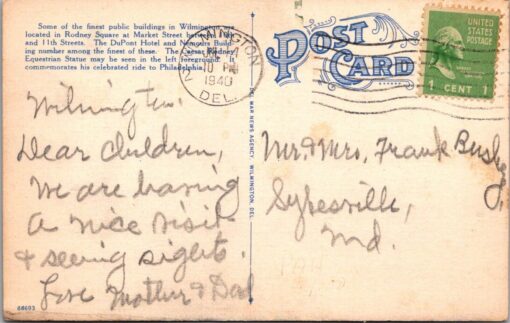 Some of the finest public buildings in Wilmington are
located in Rodney Square at Market Street between 10th
and 11th Streets. The DuPont Hotel and Nemours Build-
ing number among the finest of these. The Caesar Rodney
Equestrian Statue may be seen in the left foreground. It
commemorates his celebrated ride to Philadelphia.
WILMINGTON
10 PM
1940
DEL.
POST
CARD
UNITED
STATES
POSTAGE
1 CENT 1
DEL MAR NEWS AGENCY, WILMINGTON, DEL.
Wilmington.
Dear Children,
We are having
a nice visit
& seeing sights.
Love Mother & Dad
Mr. & Mrs. Frank
Sykesville,
Md.